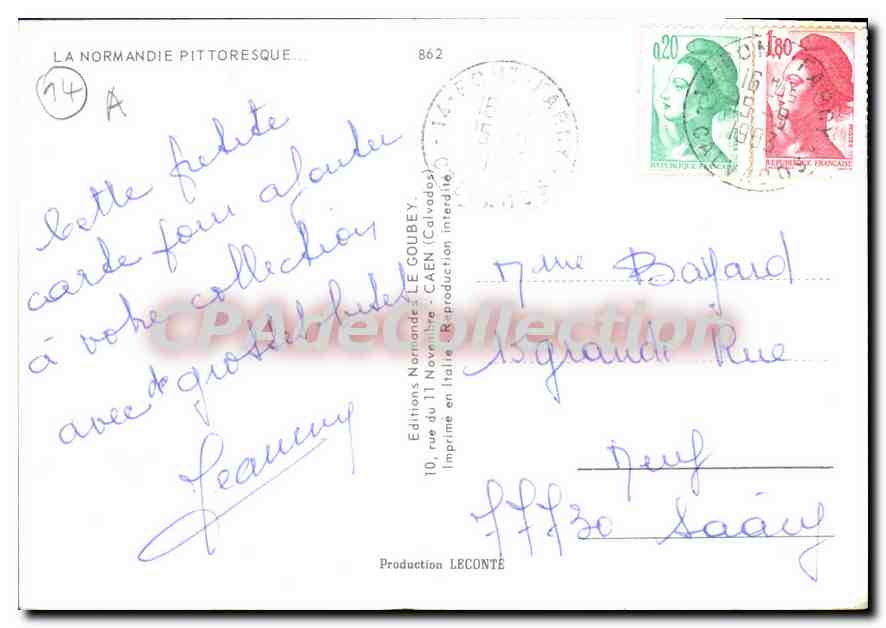 LA NORMANDIE PITTORESQUE...
862
14
A
Cette petite
carte pour ajouter
à votre collection
avec de grosses bises
Editions Normandes LE GOUBEY.
10, rue du 11 Novembre - CAEN (Calvados)
Imprimé en Italie - Reproduction interdite
0,20
REPUBLIQUE FRANÇAISE
1,80
REPUBLIQUE FRANÇAISE
Mme Bayard
13 grande Rue
77730 Saacy
Production LECONTE
CPAdeCollection